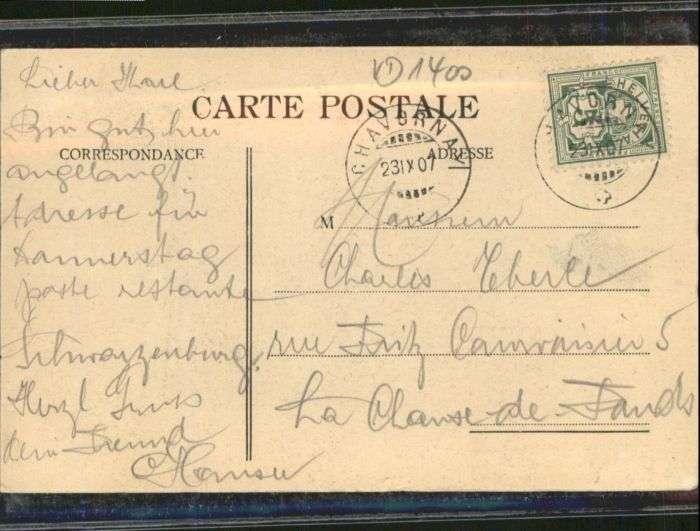 1400
CARTE POSTALE
CORRESPONDANCE
ADRESSE
CHAVORNAY
23 IX 07
FRANCO
HELVETIA
CHAVORNAY
23 IX 07
Lieber Karl.
Bin gut hier
angelangt.
Adresse für
Donnerstag
poste restante
Schwarzenburg.
Herzl Gruss
dein Freund
Hansu
M Monsieur
Charles Eberle
rue Fritz Courvoisier 5
La Chaux-de-Fonds